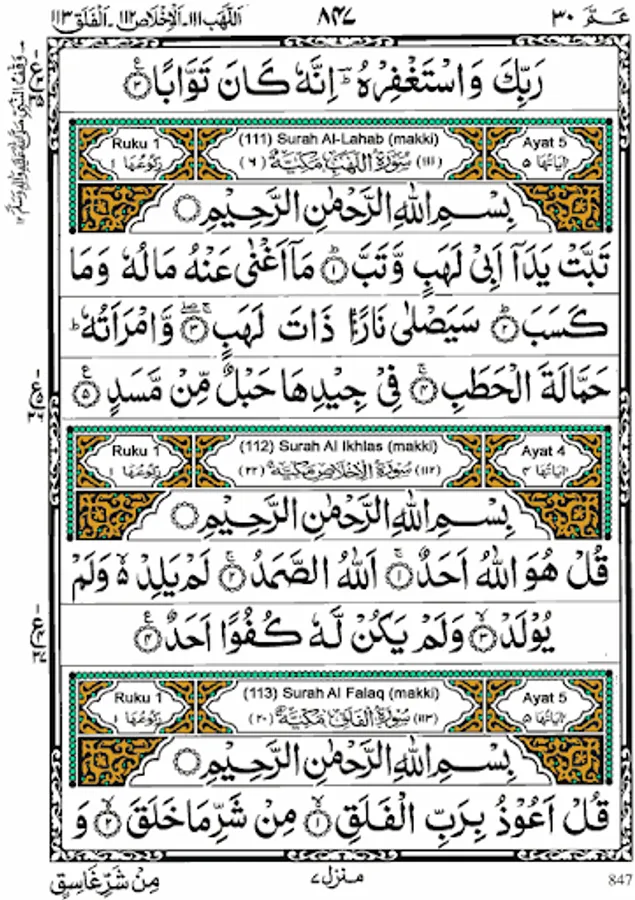 اللَّهَب ۱۱۱۔ الْاِخْلَاص ۱۱۲۔ الْفَلَق ۱۱۳ ۸۴۷ عَمَّ ۳۰
رَبِّكَ وَاسْتَغْفِرْهُ ؔؕ اِنَّهٗ كَانَ تَوَّابًا ۳
Ruku 1 (111) Surah Al-Lahab (makki) Ayat 5
رُكُوْعُهَا ۱ (۱۱۱) سُوْرَةُ اللَّهَبِ مَكِّيَّةٌ (۶) اٰيَاتُهَا ۵
بِسْمِ اللّٰهِ الرَّحْمٰنِ الرَّحِيْمِ
تَبَّتْ يَدَاۤ اَبِيْ لَهَبٍ وَّتَبَّ ؕ ۱ مَاۤ اَغْنٰى عَنْهُ مَالُهٗ وَمَا
كَسَبَ ؕ ۲ سَيَصْلٰى نَارًا ذَاتَ لَهَبٍ ۚۖ ۳ وَّامْرَاَتُهٗ ؕ
حَمَّالَةَ الْحَطَبِ ۚ ۴ فِيْ جِيْدِهَا حَبْلٌ مِّنْ مَّسَدٍ ۵
Ruku 1 (112) Surah Al Ikhlas (makki) Ayat 4
رُكُوْعُهَا ۱ (۱۱۲) سُوْرَةُ الْاِخْلَاصِ مَكِّيَّةٌ (۲۲) اٰيَاتُهَا ۴
بِسْمِ اللّٰهِ الرَّحْمٰنِ الرَّحِيْمِ
قُلْ هُوَ اللّٰهُ اَحَدٌ ۚ ۱ اَللّٰهُ الصَّمَدُ ۚ ۲ لَمْ يَلِدْ ۙ۬ وَلَمْ
يُوْلَدْ ۙ ۳ وَلَمْ يَكُنْ لَّهٗ كُفُوًا اَحَدٌ ۴
Ruku 1 (113) Surah Al Falaq (makki) Ayat 5
رُكُوْعُهَا ۱ (۱۱۳) سُوْرَةُ الْفَلَقِ مَكِّيَّةٌ (۲۰) اٰيَاتُهَا ۵
بِسْمِ اللّٰهِ الرَّحْمٰنِ الرَّحِيْمِ
قُلْ اَعُوْذُ بِرَبِّ الْفَلَقِ ۙ ۱ مِنْ شَرِّ مَا خَلَقَ ۙ ۲ وَ
مِنْ شَرِّ غَاسِقٍ منزل ۷ 847